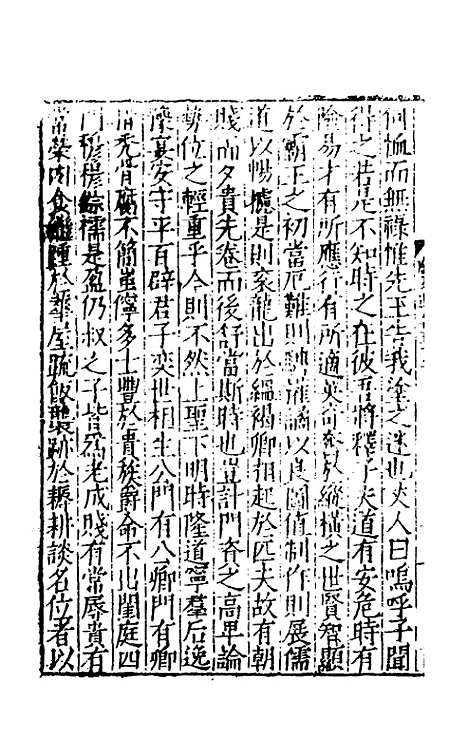 何恤而無祿惟先生告我塗之迷也夫人曰嗚呼子聞
得之若是不知時之在彼吾將釋子夫道有安危時有
險易才有所應行有所適英奇奮於縱橫之世賢智顯
於霸王之初當厄難則騁權譎以良圖值制作則展儒
道以暢攄是則袞龍出於縕褐卿相起於匹夫故有朝
賤而夕貴先卷而後舒當斯時也豈計門資之高卑論
勢位之輕重乎今則不然上聖下明時隆道寧羣后逸
豫宴安守平百辟君子奕世相生公門有公卿門有卿
指禿腐骨不簡蚩儜多士豐於貴族爵命不出閨庭四
門穆穆綺襦是盈仍叔之子皆為老成賤有常辱貴有
常榮肉食繼踵於華屋疏飯襲跡於耨耕談名位者以